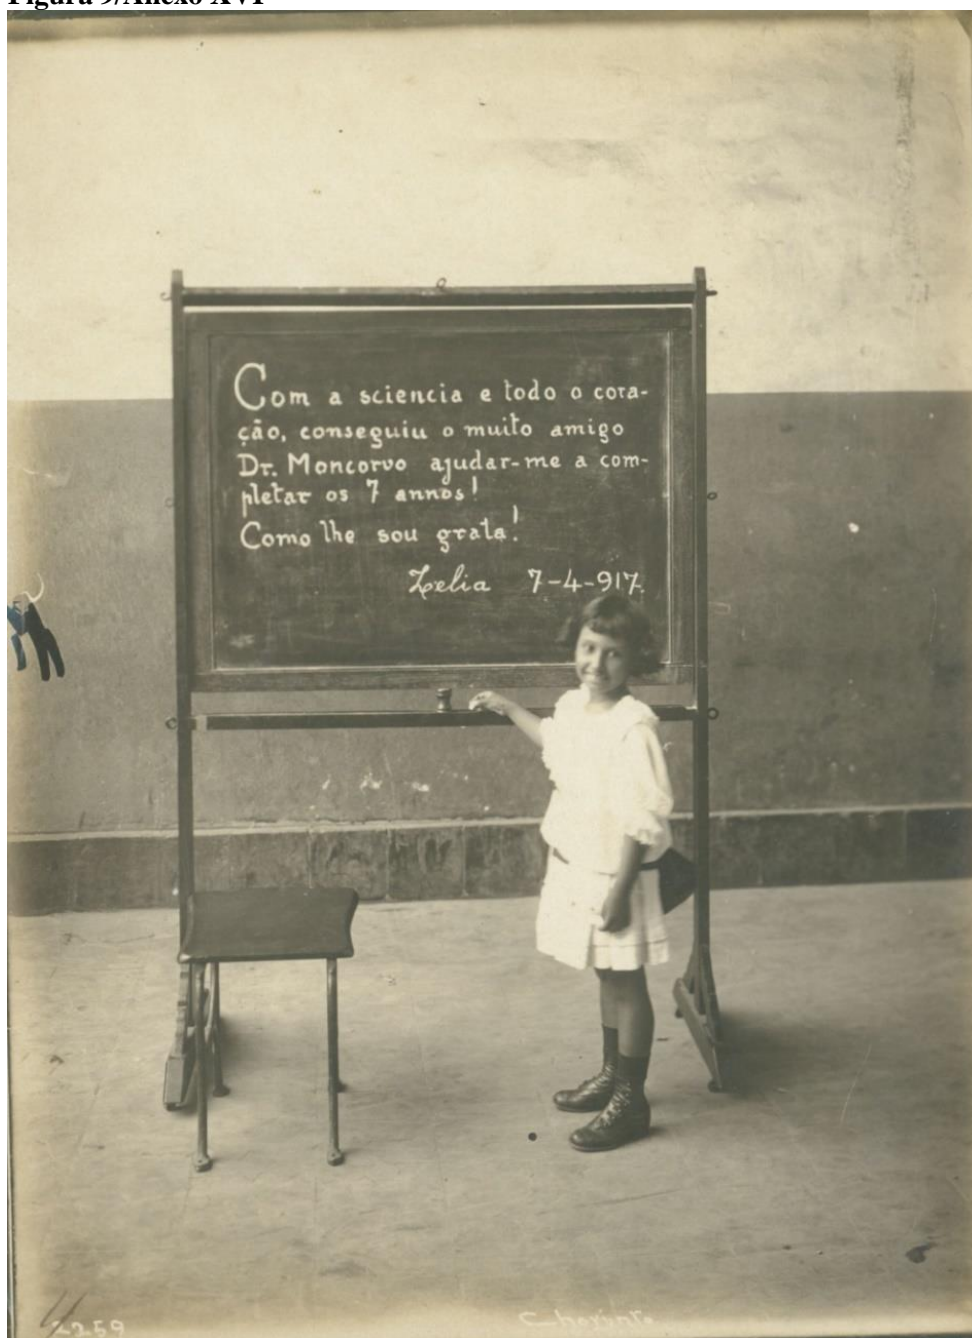 Figura 9/Anexo XVI
Com a sciencia e todo o cora-
ção, conseguiu o muito amigo
Dr. Moncorvo ajudar-me a com-
pletar os 7 annos!
Como lhe sou grata!
Zelia 7-4-917.
2259